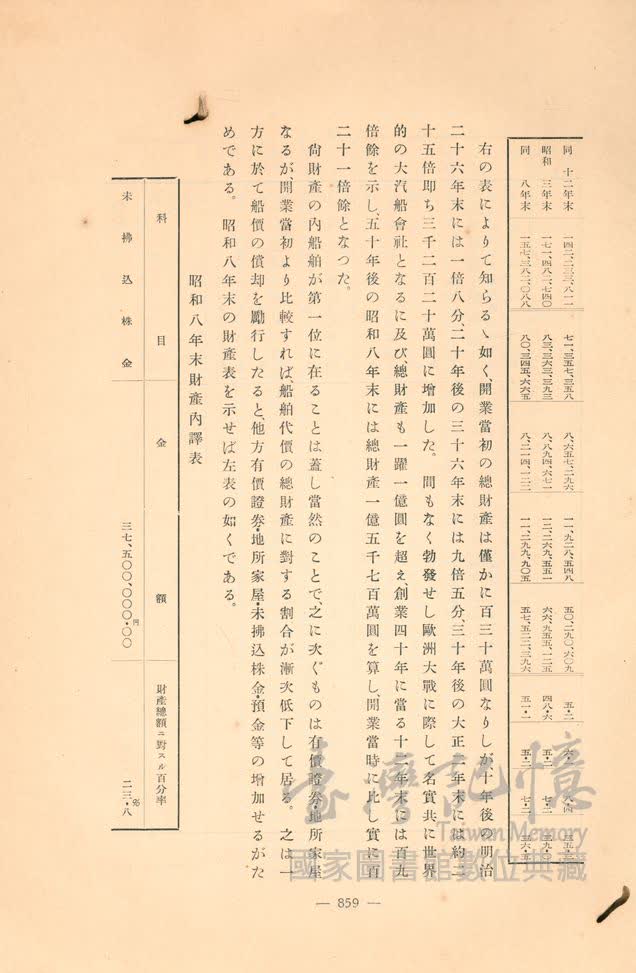 同 十二年末 一四二、二三三、八一一 七一、三五七、三五八 八、六五七、二九六 一一、九二八、五四八 五〇、二九〇、六〇九 五・二
昭和 三年末 一七一、四八二、七四〇 八三、三六三、三九三 八、八九四、六七一 一二、二六九、五五一 六六、九五五、一二五 四八・六 五・二 七・二 三九・〇
同 八年末 一五七、三八二、〇八八 八〇、三四五、六六五 八、二一四、一二二 一一、二九九、九〇五 五七、五二二、三九六 五一・一 五・二 七・二 三六・五
右の表によりて知らるゝ如く、開業當初の總財產は僅かに百三十萬圓なりしが、十年後の明治
二十六年末には一倍八分、二十年後の三十六年末には九倍五分、三十年後の大正二年末には約二
十五倍卽ち三千二百二十萬圓に增加した。 間もなく勃發せし歐洲大戰に際して名實共に世界
的の大汽船會社となるに及び、總財產も一躍一億圓を超え、創業四十年に當る十二年末には百九
倍餘を示し、五十年後の昭和八年末には總財產一億五千七百萬圓を算し、開業當時に比し實に百
二十一倍餘となつた。
尙財產の內船舶が第一位に在ることは、蓋し當然のことで、之に次ぐものは有價證券・地所家屋
なるが、開業當初より比較すれば、船舶代價の總財產に對する割合が漸次低下して居る。 之は一
方に於て船價の償却を勵行したると、他方有價證券・地所家屋・未拂込株金・預金等の增加せるがた
めである。 昭和八年末の財產表を示せば左表の如くである。
昭和八年末財產內譯表
科目 金額 財產總額ニ對スル百分率
未拂込株金 三七、五〇〇、〇〇〇・〇〇円 二三・八%
臺灣記憶
Taiwan Memory
國家圖書館數位典藏
— 859 —